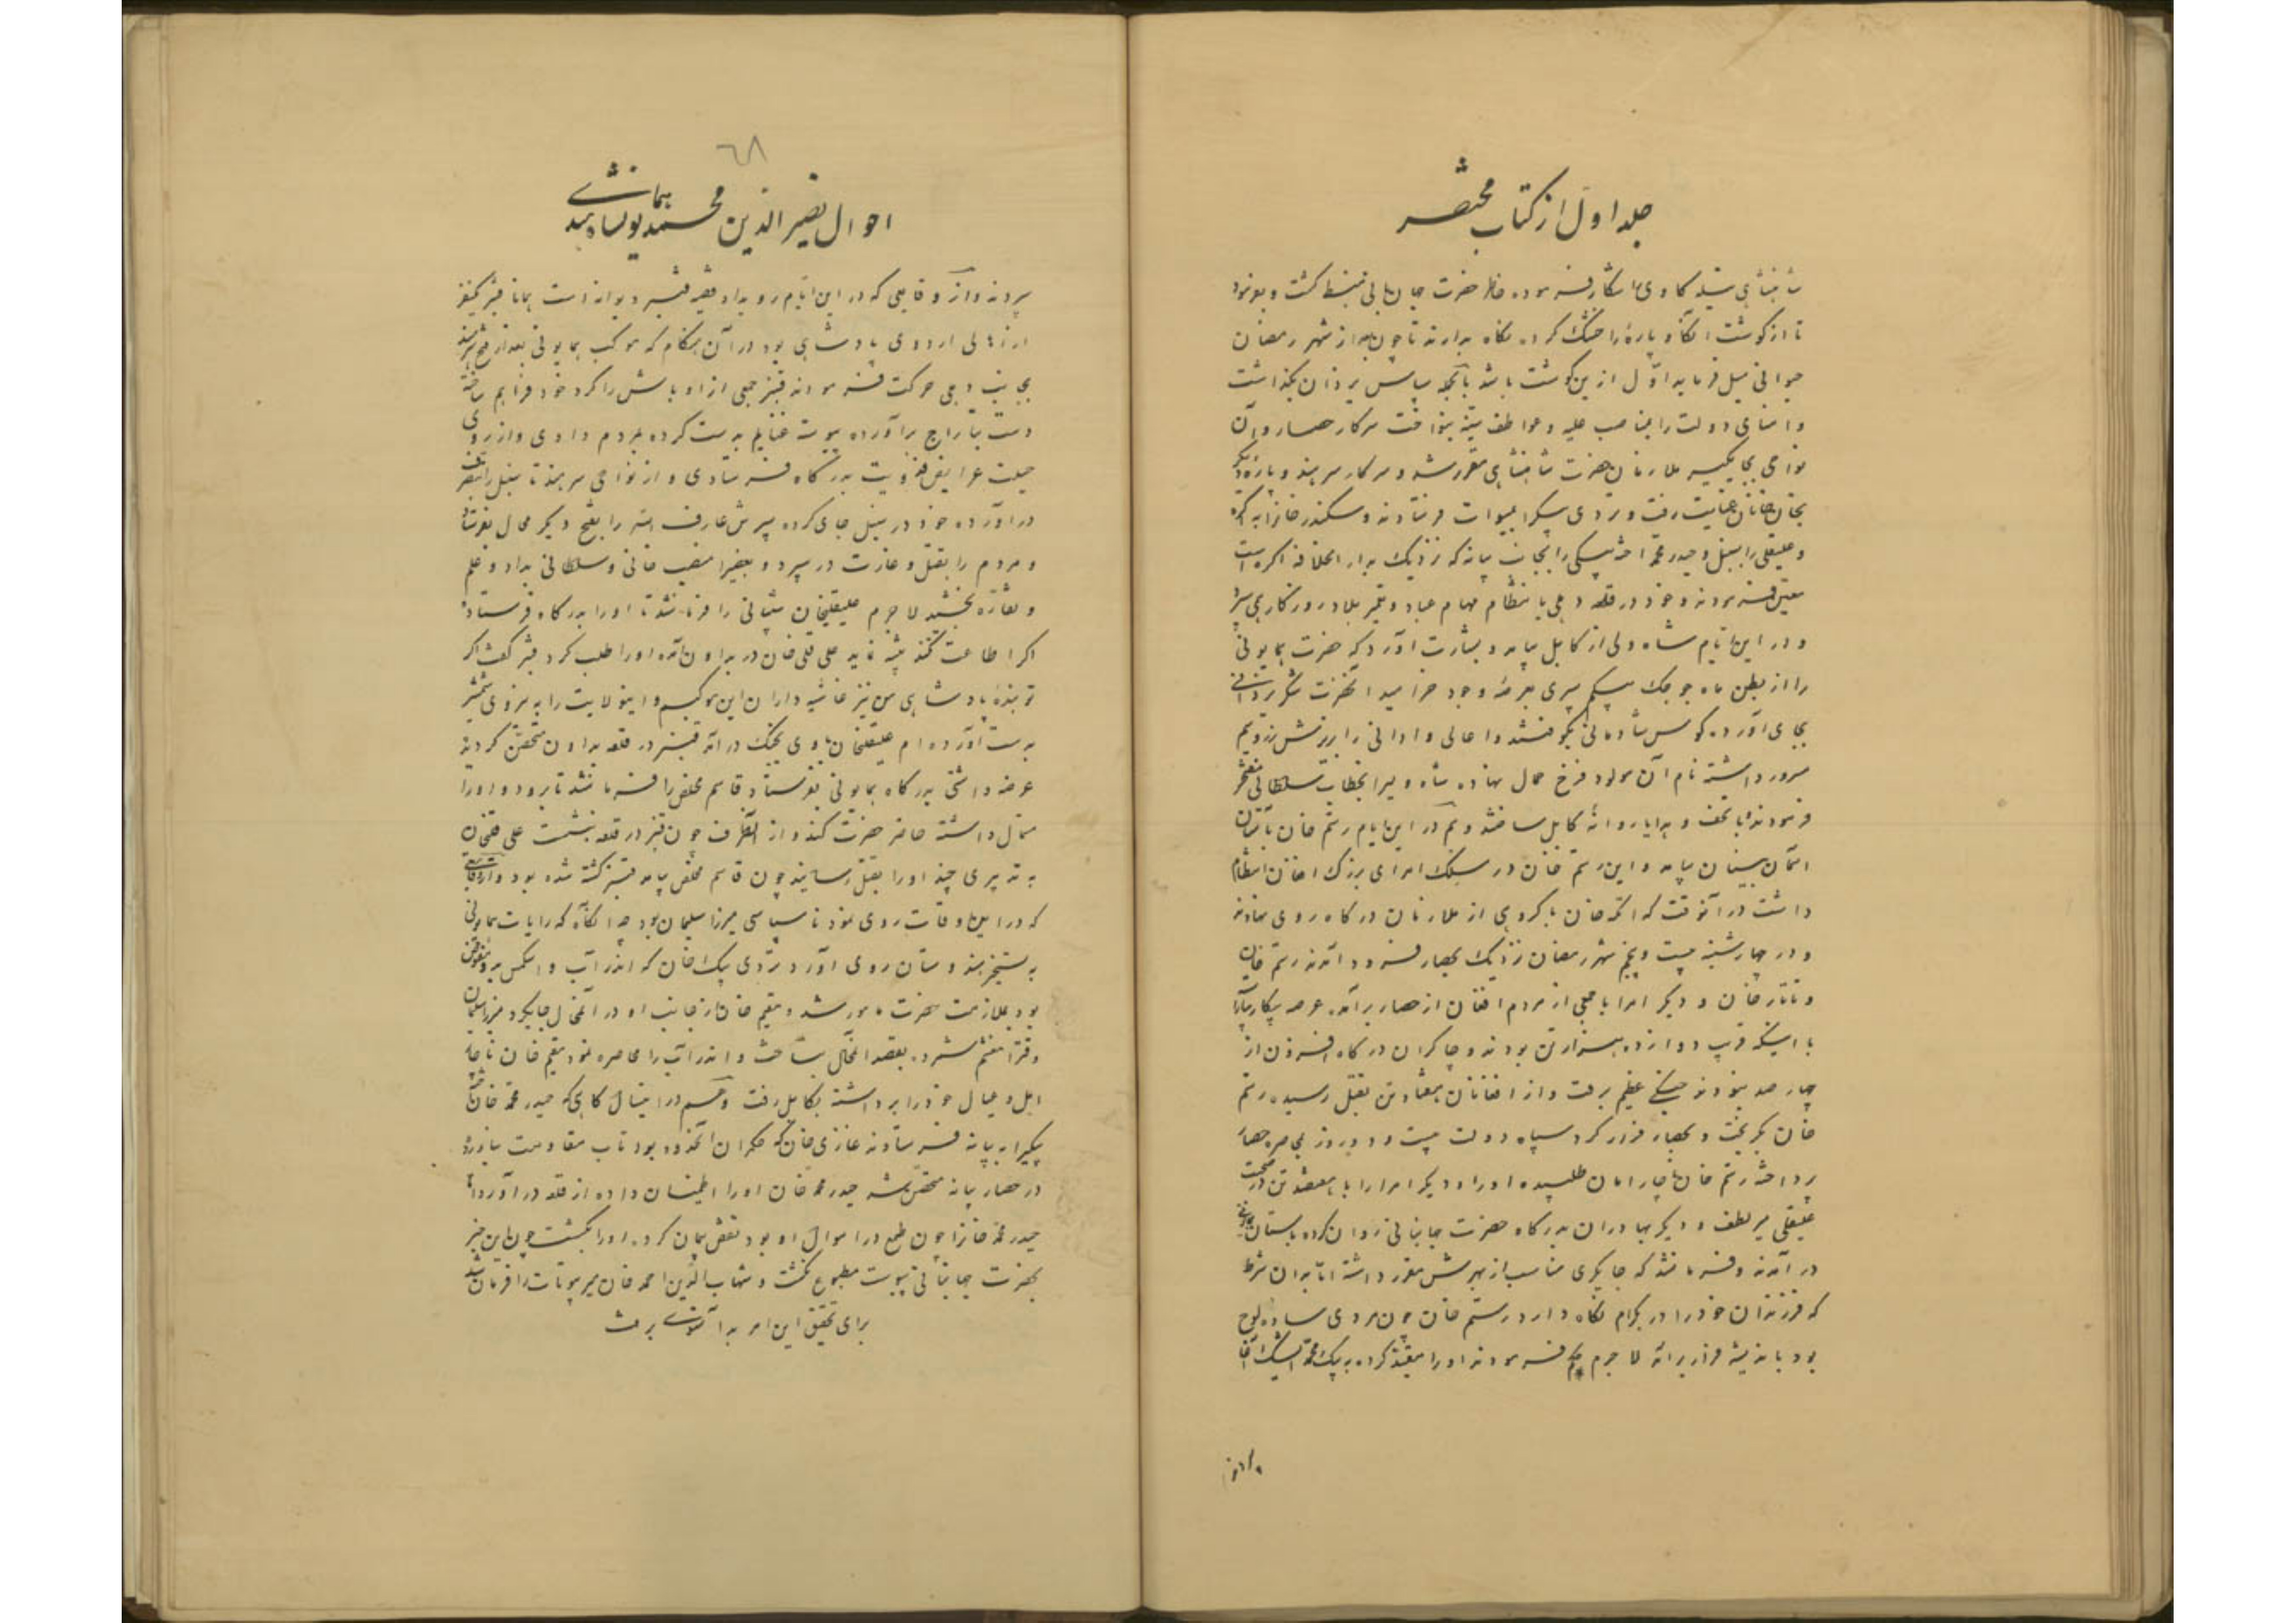 جلد اول از کتاب مختصر
شاهنشاهی نیله کاوی را شکار فرموده خاطر حضرت جهانبانی منبسط کشت و بفرمود
تا از کوشت آنکاو پارهٔ را خشک کرده نکاه بدارند تا چون بعد از شهر رمضان
حیوانی میل فرماید اول ازین کوشت باشد بالجمله سپاس یزدان بکذاشت
و امنای دولت را بمناصب علیه و عواطف بنواخت سرکار حصار و آن
نواحی بجایکیر ملازمان حضرت شاهنشاهی مقرر شد و سرکار سرهند و پارهٔ دیکر
بخانخانان عنایت رفت و تردی بیک را بمیوات فرستادند و سکندر خانرا به اکره
و علیقلی را بسنبل و حیدر محمد آخته بیکی را بجانب بیانه که نزدیک بدار الخلافه اکره است
معین فرمودند و خود در قلعه دهلی بانتظام مهام عباد و تعمیر بلاد روزکار می‌برد
و در این ایام شاه ولی از کابل بیامد و بشارت آورد که حضرت همایونی
را از بطن ماه جوجک بیکم پسری بعرصهٔ وجود خرامید آنحضرت شکر یزدانی
بجای آورده کوس شادمانی بکوفتند و اعالی و ادانی را بریزش زر و سیم
مسرور داشته نام آن مولود فرخ فال نهاده شاه ولی را بخطاب سلطانی مفتخر
فرمودند و با تحف و هدایا روانهٔ کابل ساختند و هم در این ایام رستم خان
آسمان بنیان بیامد و این رستم خان در سلک امرای بزرک افغان انتظام
داشت در آنوقت که اتکه خان با کروهی از ملازمان درکاه روی نهادند
و در چهارشنبه بیست و پنجم شهر رمضان نزدیک بحصار فرود آمدند رستم خان
و تاتار خان و دیکر امرا با جمعی از مردم افغان از حصار برآمده عرصه پیکار بیاراستند
با اینکه قریب دوازده هزار تن بودند و چاکران درکاه افزون از
چهار صد نبودند جنکی عظیم برفت و از افغانان هفتاد تن بقتل رسیده رستم
خان بکریخت و بحصار فرار کرد سپاه دولت بیست و دو روز بمحاصره حصار
پرداخته رستم خان ناچار امان طلبیده او را و دیکر امرا را با هفتصد تن در صحبت
علیقلی میر لطف و دیکر بهادران بدرکاه حضرت جهانبانی روان کرده باستان بوسی
در آمدند و فرمان شد که جایکیری مناسب از بهرش مقرر داشته اما بدان شرط
که فرزندان خود را در بکرام نکاه دارد رستم خان چون مردی ساده لوح
بود باندیشه فرار برآمد لا جرم حکم فرمودند او را مقید کرده به بیک محمد ایشک آقا
۶۸
احوال نصیر الدین محمد همایون پادشاه هندی
سپردند و از وقایعی که در این ایام روی داد قضیه قنبر دیوانه است همانا قنبر یکنفر
از اهالی اردوی پادشاهی بود در آن هنکام که موکب همایونی بعد از فتح سرهند
بجانب دهلی حرکت فرمودند قنبر جمعی از اوباش را کرد خود فراهم ساخته
دست بتاراج برآورده پیوسته غنایم بدست کرده بمردم دادی و از روی
حیلت عرایض فدویت بدرکاه فرستادی و از نواحی سرهند تا سنبل را بتصرف
درآورده خود در سنبل جای کرده پسرش عارف الله را بفتح دیکر محال بفرستاد
و مردم را بقتل و غارت در سپرد و بعضی را منصب خانی و سلطانی بداد و علم
و نقاره بخشید لا جرم علیقلیخان شیبانی را فرمان شد تا او را بدرکاه فرستاد
اکر اطاعت نکند تنبیه نماید علی قلی خان در بداون آمده او را طلب کرد قنبر کفت اکر
تو بندهٔ پادشاهی من نیز غاشیه داران این موکبم و اینولایت را به نیروی شمشیر
بدست آورده‌ام علیقلیخان با وی بجنک درآمد قنبر در قلعه بداون متحصن کردید
عرضه داشتی بدرکاه همایونی بفرستاد قاسم مخلص را فرمان شد تا برود و او را
ستمال داشته حاضر حضرت کند و از آنطرف چون قنبر در قلعه بنشست علی قلیخان
به تدبیری چند او را بقتل رسانید چون قاسم مخلص بیامد قنبر کشته شده بود و از وقایعی
که در این اوقات روی نمود ناسپاسی میرزا سلیمان بود چه آنکاه که رایات همایونی
به تسخیر هندوستان روی آورد تردی بیک خان که اندرآب و اشکمش بدو مفوض
بود بملازمت حضرت مامور شد و مقیم خان از جانب او در آنمحال جای کرد میرزا سلیمان
وقترا مغتنم شمرده بقصد آنمحال بتاخت و اندرآب را محاصره نمود مقیم خان ناچار
اهل و عیال خود را برداشته بکابل رفت و هم در اینسال کاهی که حیدر محمد خان آخته
بیکی را به بیانه فرستادند غازی خان که حکمران آنحدود بود تاب مقاومت نیاورده
در حصار بیانه متحصن شد حیدر محمد خان او را اطمینان داده از قلعه درآورد اما
حیدر محمد خانرا چون طمع در اموال او بود نقض پیمان کرده او را بکشت چون این خبر
بحضرت جهانبانی پیوست مطبوع نکشت و شهاب الدین احمد خان میر بیوتات را فرمان شد
برای تحقیق این امر بدآنسوی برفت